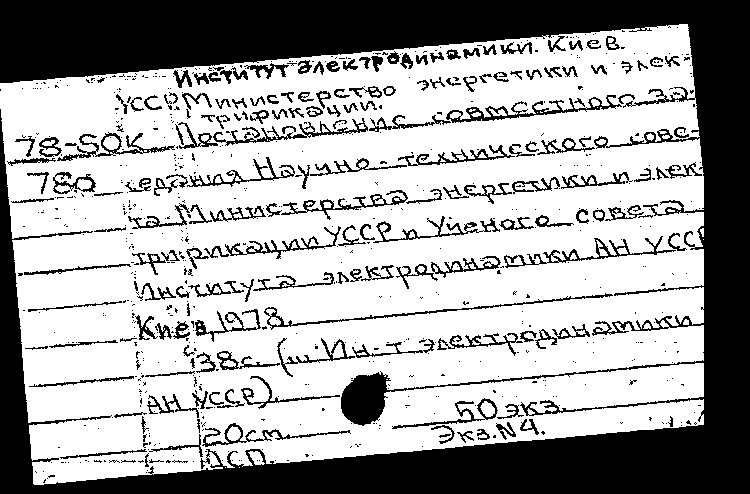 Институт электродинамики. Киев.
УССР. Министерство энергетики и элек-
трификации.
78-50к Постановление совместного за-
780 седания Научно-технического сове-
та Министерства энергетики и элек-
трификации УССР и Ученого совета
Института электродинамики АН УССР
Киев, 1978.
38с. (Ин-т электродинамики
АН УССР).
20см. 50 экз.
ДСП. Экз. N4.